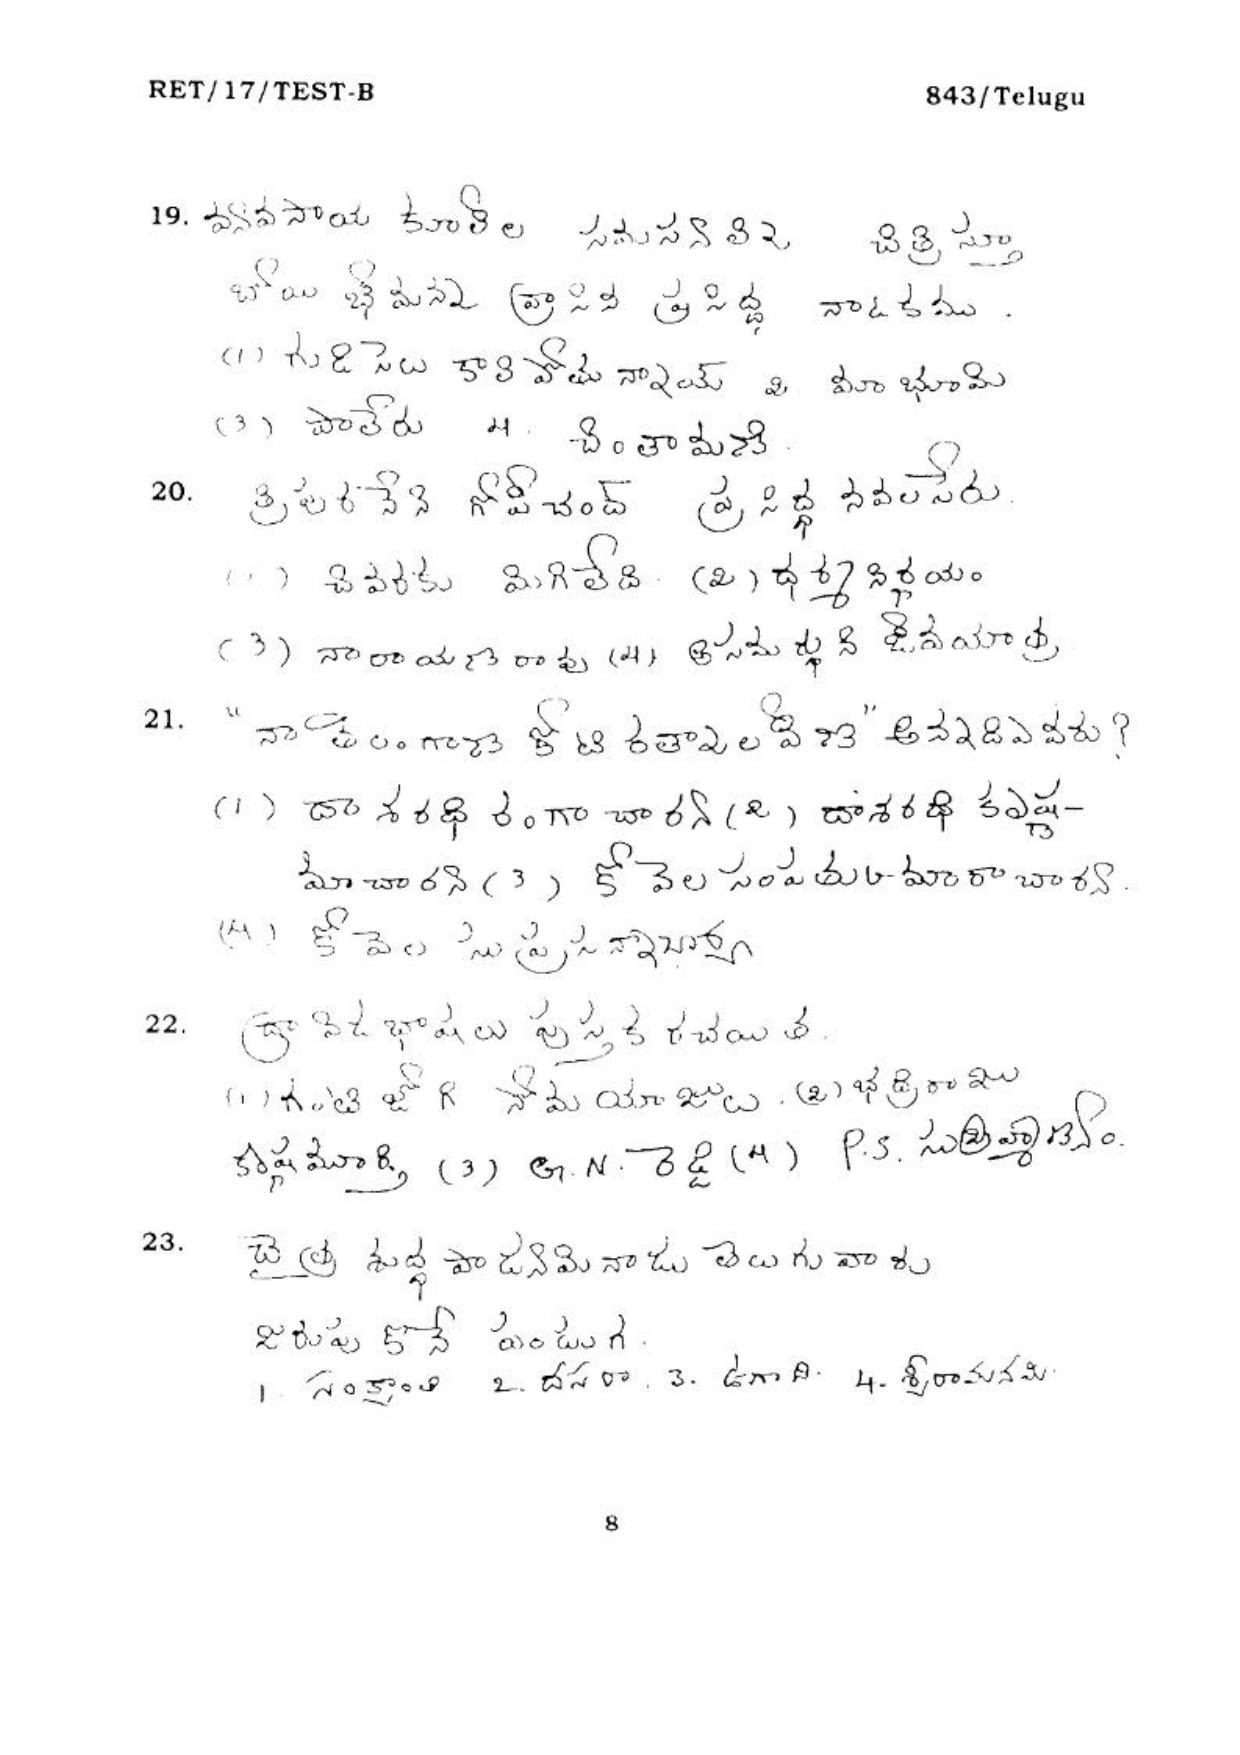 RET/17/TEST-B 843/Telugu
19. వ్యవసాయ కూలీల సమస్యలని చిత్రిస్తూ
బోయి భీమన్న వ్రాసిన ప్రసిద్ధ నాటకము .
(1) గుడిసెలు కాలిపోతున్నాయ్ 2 మా భూమి
(3) పాలేరు 4. చింతామణి .
20. త్రిపురనేని గోపీచంద్ ప్రసిద్ధ నవల పేరు.
(1) చివరకు మిగిలేది. (2) ధర్మ నిర్ణయం
(3) నారాయణరావు (4) అసమర్థుని జీవయాత్ర
21. "నా తెలంగాణ కోటి రతనాల వీణ" అన్నది ఎవరు?
(1) దాశరథి రంగాచార్య (2) దాశరథి కృష్ణ-
మాచార్య (3) కోవెల సంపత్కుమారాచార్య.
(4) కోవెల సుప్రసన్నాచార్య
22. ద్రావిడ భాషలు పుస్తక రచయిత .
(1) గంటి జోగి సోమయాజులు . (2) భద్రిరాజు
కృష్ణమూర్తి (3) G. N. రెడ్డి (4) P.S. సుబ్రహ్మణ్యం.
23. చైత్ర శుద్ధ పాడ్యమి నాడు తెలుగు వారు
జరుపుకొనే పండుగ .
1. సంక్రాంతి 2. దసరా . 3. ఉగాది. 4. శ్రీరామనవమి.
8